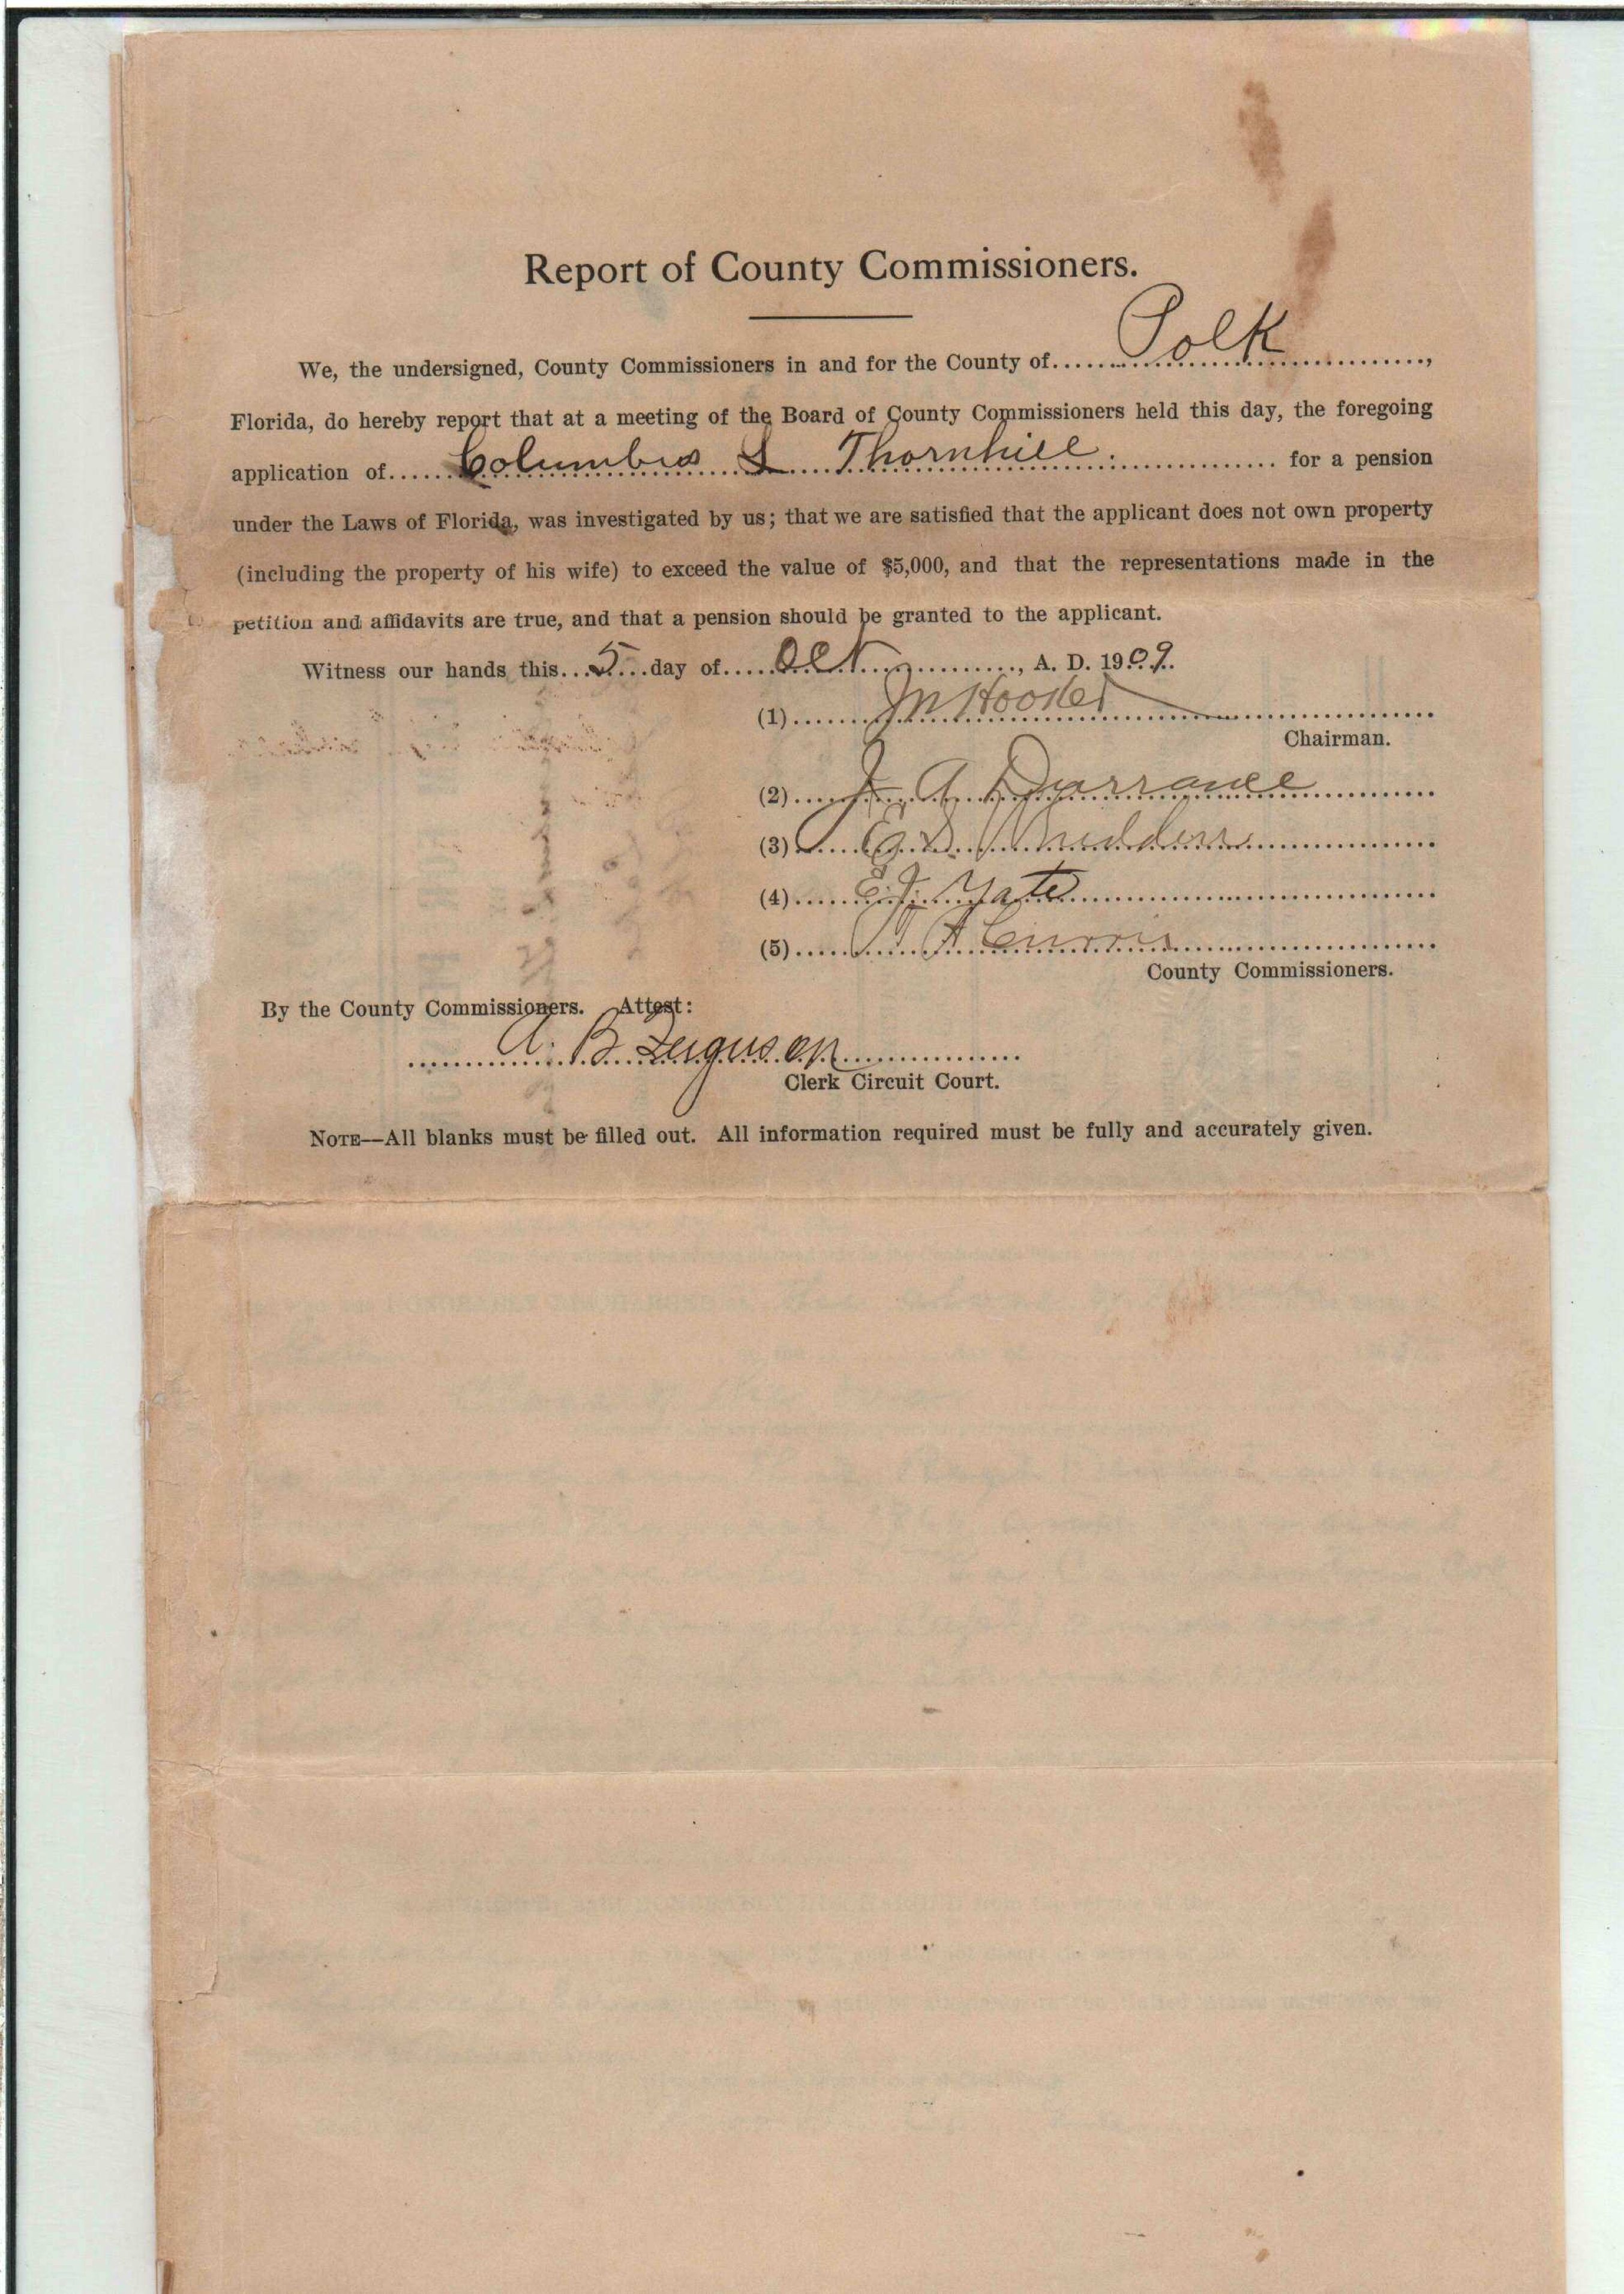 Report of County Commissioners.
We, the undersigned, County Commissioners in and for the County of Polk,
Florida, do hereby report that at a meeting of the Board of County Commissioners held this day, the foregoing
application of Columbus L Thornhill for a pension
under the Laws of Florida, was investigated by us; that we are satisfied that the applicant does not own property
(including the property of his wife) to exceed the value of $5,000, and that the representations made in the
petition and affidavits are true, and that a pension should be granted to the applicant.
Witness our hands this 5 day of Oct, A. D. 1909.
(1) Hooker
Chairman.
(2) J. A. Durrance
(3) E. D.
(4) E. J. Yate
(5)
County Commissioners.
By the County Commissioners. Attest:
A. B. Ferguson
Clerk Circuit Court.
NOTE—All blanks must be filled out. All information required must be fully and accurately given.